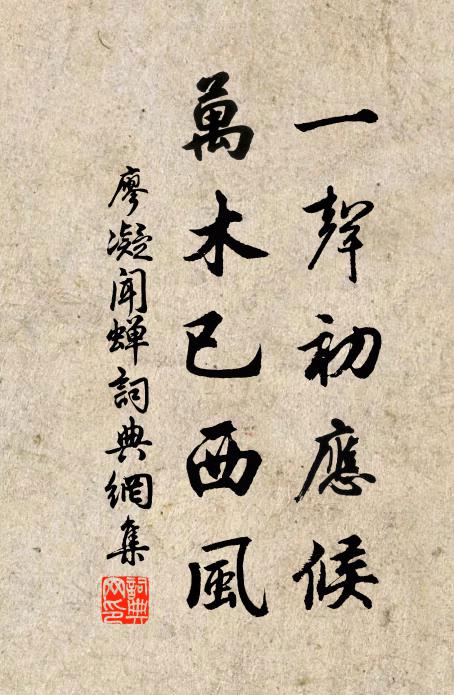 一聲初應候
萬木已西風
廖凝聞蟬詞典網集
詞典網印